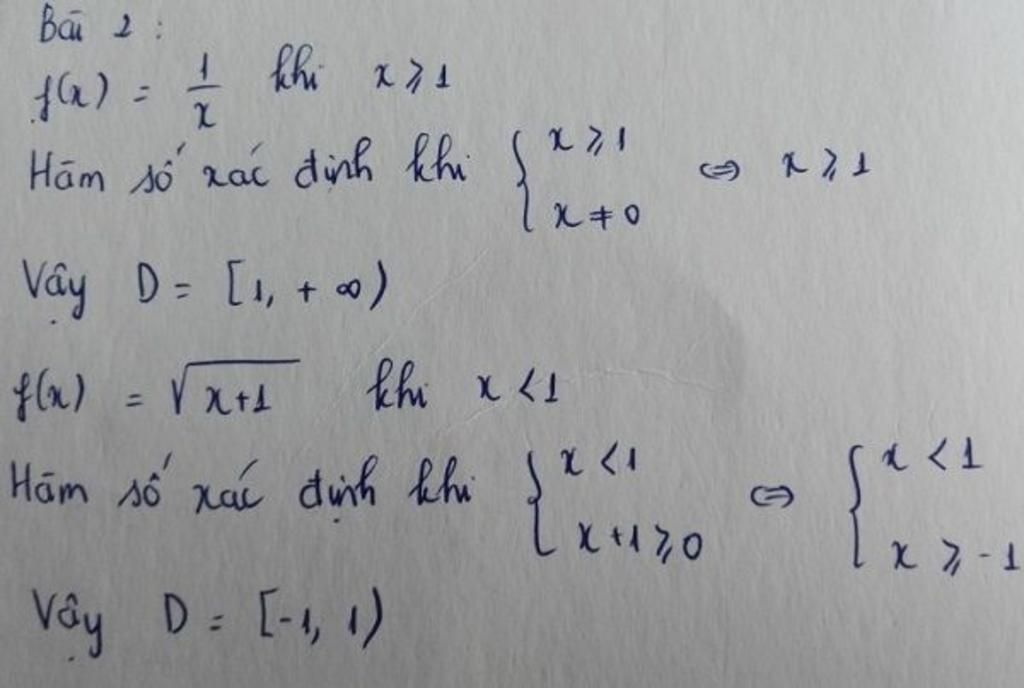 Bài 2 :
f(x) = 1/x khi x ⩾ 1
Hàm số xác định khi { x ⩾ 1 ; x ≠ 0 ⇔ x ⩾ 1
Vậy D = [1, + ∞)
f(x) = √(x+1) khi x < 1
Hàm số xác định khi { x < 1 ; x + 1 ⩾ 0 ⇔ { x < 1 ; x ⩾ -1
Vậy D = [-1, 1)